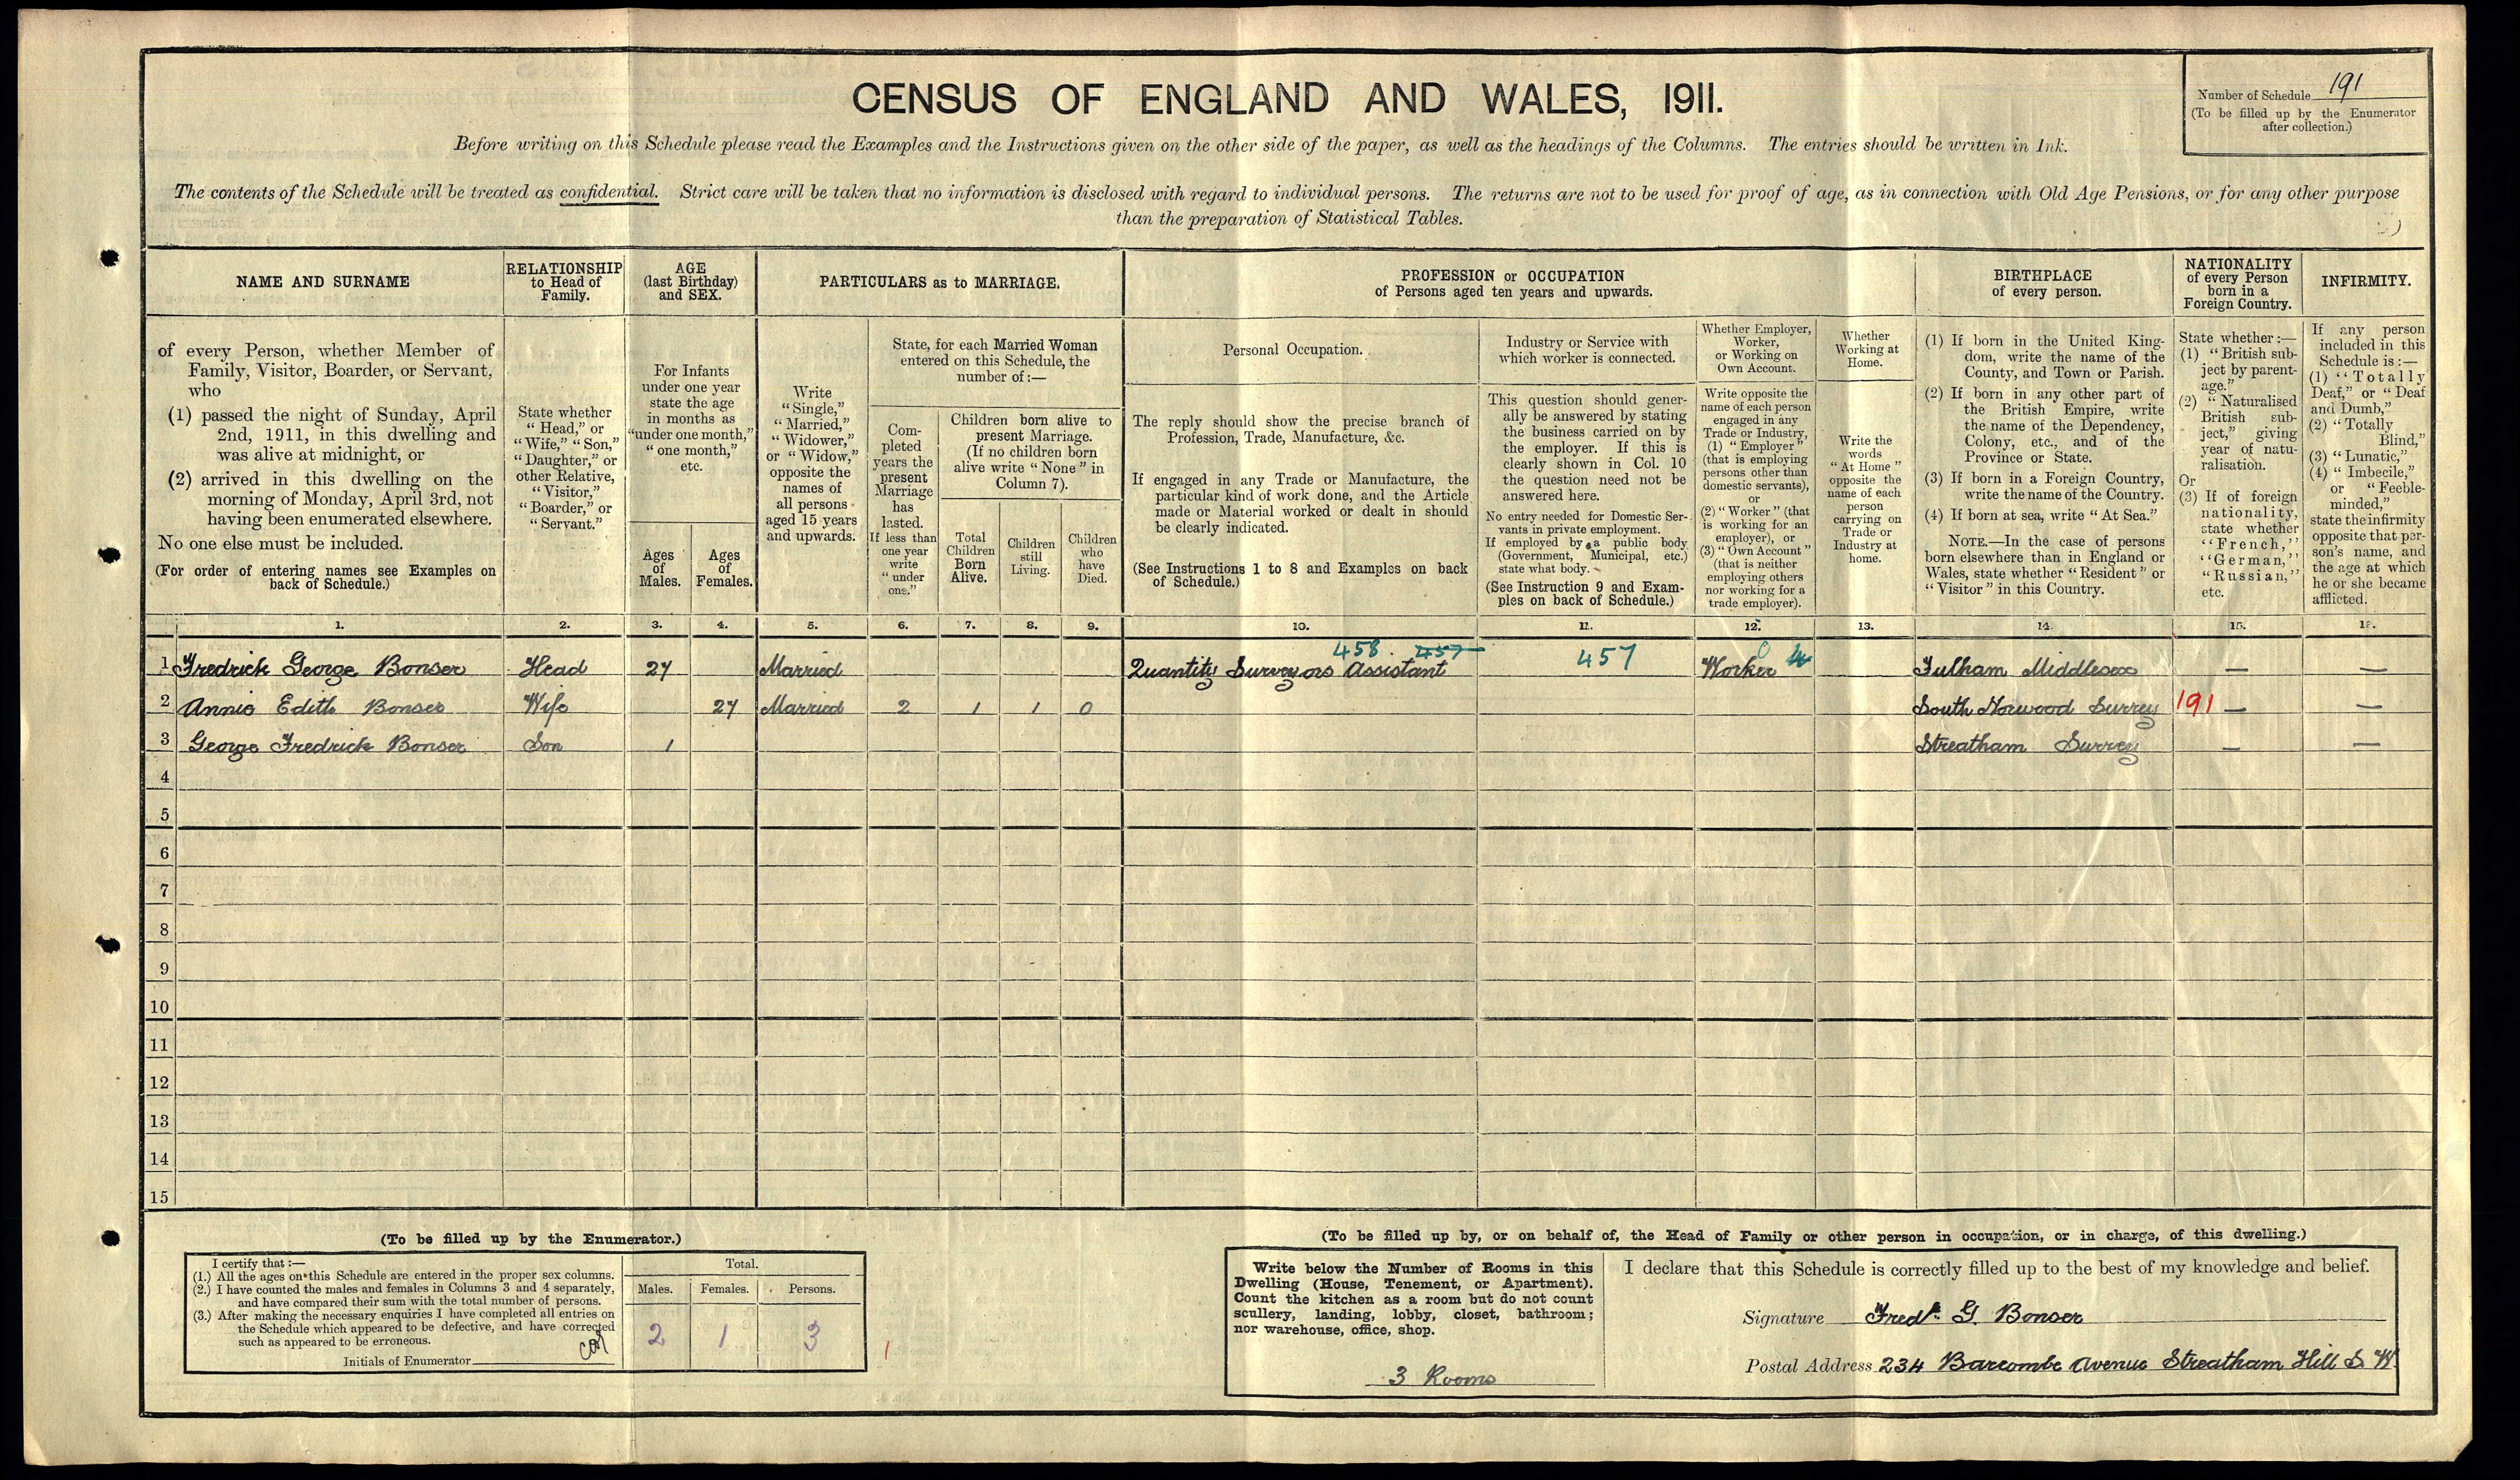 CENSUS OF ENGLAND AND WALES, 1911.
Number of Schedule 191
(To be filled up by the Enumerator
after collection.)
Before writing on this Schedule please read the Examples and the Instructions given on the other side of the paper, as well as the headings of the Columns. The entries should be written in Ink.
The contents of the Schedule will be treated as confidential. Strict care will be taken that no information is disclosed with regard to individual persons. The returns are not to be used for proof of age, as in connection with Old Age Pensions, or for any other purpose
than the preparation of Statistical Tables.
NAME AND SURNAME
of every Person, whether Member of
Family, Visitor, Boarder, or Servant,
who
(1) passed the night of Sunday, April
2nd, 1911, in this dwelling and
was alive at midnight, or
(2) arrived in this dwelling on the
morning of Monday, April 3rd, not
having been enumerated elsewhere.
No one else must be included.
(For order of entering names see Examples on
back of Schedule.)
RELATIONSHIP
to Head of
Family.
State whether
"Head," or
"Wife," "Son,"
"Daughter," or
other Relative,
"Visitor,"
"Boarder," or
"Servant."
AGE
(last Birthday)
and SEX.
For Infants
under one year
state the age
in months as
"under one month,"
"one month,"
etc.
Ages
of
Males.
Ages
of
Females.
PARTICULARS as to MARRIAGE.
Write
"Single,"
"Married,"
"Widower,"
or "Widow,"
opposite the
names of
all persons
aged 15 years
and upwards.
State, for each Married Woman
entered on this Schedule, the
number of:—
Com-
pleted
years the
present
Marriage
has
lasted.
If less than
one year
write
"under
one."
Children born alive to
present Marriage.
(If no children born
alive write "None" in
Column 7).
Total
Children
Born
Alive.
Children
still
Living.
Children
who
have
Died.
PROFESSION or OCCUPATION
of Persons aged ten years and upwards.
Personal Occupation.
The reply should show the precise branch of
Profession, Trade, Manufacture, &c.
If engaged in any Trade or Manufacture, the
particular kind of work done, and the Article
made or Material worked or dealt in should
be clearly indicated.
(See Instructions 1 to 8 and Examples on back
of Schedule.)
Industry or Service with
which worker is connected.
This question should gener-
ally be answered by stating
the business carried on by
the employer. If this is
clearly shown in Col. 10
the question need not be
answered here.
No entry needed for Domestic Ser-
vants in private employment.
If employed by a public body
(Government, Municipal, etc.)
state what body.
(See Instruction 9 and Exam-
ples on back of Schedule.)
Whether Employer,
Worker,
or Working on
Own Account.
Write opposite the
name of each person
engaged in any
Trade or Industry,
(1) "Employer"
(that is employing
persons other than
domestic servants),
or
(2) "Worker" (that
is working for an
employer), or
(3) "Own Account"
(that is neither
employing others
nor working for a
trade employer).
Whether
Working at
Home.
Write the
words
"At Home"
opposite the
name of each
person
carrying on
Trade or
Industry at
home.
BIRTHPLACE
of every person.
(1) If born in the United King-
dom, write the name of the
County, and Town or Parish.
(2) If born in any other part of
the British Empire, write
the name of the Dependency,
Colony, etc., and of the
Province or State.
(3) If born in a Foreign Country,
write the name of the Country.
(4) If born at sea, write "At Sea."
NOTE.—In the case of persons
born elsewhere than in England or
Wales, state whether "Resident" or
"Visitor" in this Country.
NATIONALITY
of every Person
born in a
Foreign Country.
State whether:—
(1) "British sub-
ject by parent-
age."
(2) "Naturalised
British sub-
ject," giving
year of natu-
ralisation.
Or
(3) If of foreign
nationality,
state whether
"French,"
"German,"
"Russian,"
etc.
INFIRMITY.
If any person
included in this
Schedule is:—
(1) "Totally
Deaf," or "Deaf
and Dumb,"
(2) "Totally
Blind,"
(3) "Lunatic,"
(4) "Imbecile,"
or "Feeble-
minded,"
state the infirmity
opposite that per-
son's name, and
the age at which
he or she became
afflicted.
1. 2. 3. 4. 5. 6. 7. 8. 9. 10. 11. 12. 13. 14. 15. 16.
458 457
1 Fredrick George Bonser Head 27 Married Quantity Surveyors Assistant 457 Worker Fulham Middlesex — —
2 Annie Edith Bonser Wife 27 Married 2 1 1 0 South Norwood Surrey 191 — —
3 George Fredrick Bonser Son 1 Streatham Surrey — —
4
5
6
7
8
9
10
11
12
13
14
15
(To be filled up by the Enumerator.)
I certify that:—
(1.) All the ages on this Schedule are entered in the proper sex columns.
(2.) I have counted the males and females in Columns 3 and 4 separately,
and have compared their sum with the total number of persons.
(3.) After making the necessary enquiries I have completed all entries on
the Schedule which appeared to be defective, and have corrected
such as appeared to be erroneous.
Initials of Enumerator
Total.
Males. Females. Persons.
2 1 3
(To be filled up by, or on behalf of, the Head of Family or other person in occupation, or in charge, of this dwelling.)
Write below the Number of Rooms in this
Dwelling (House, Tenement, or Apartment).
Count the kitchen as a room but do not count
scullery, landing, lobby, closet, bathroom;
nor warehouse, office, shop.
3 Rooms
I declare that this Schedule is correctly filled up to the best of my knowledge and belief.
Signature Fredk. G. Bonser
Postal Address 234 Barcombe Avenue Streatham Hill S. W.